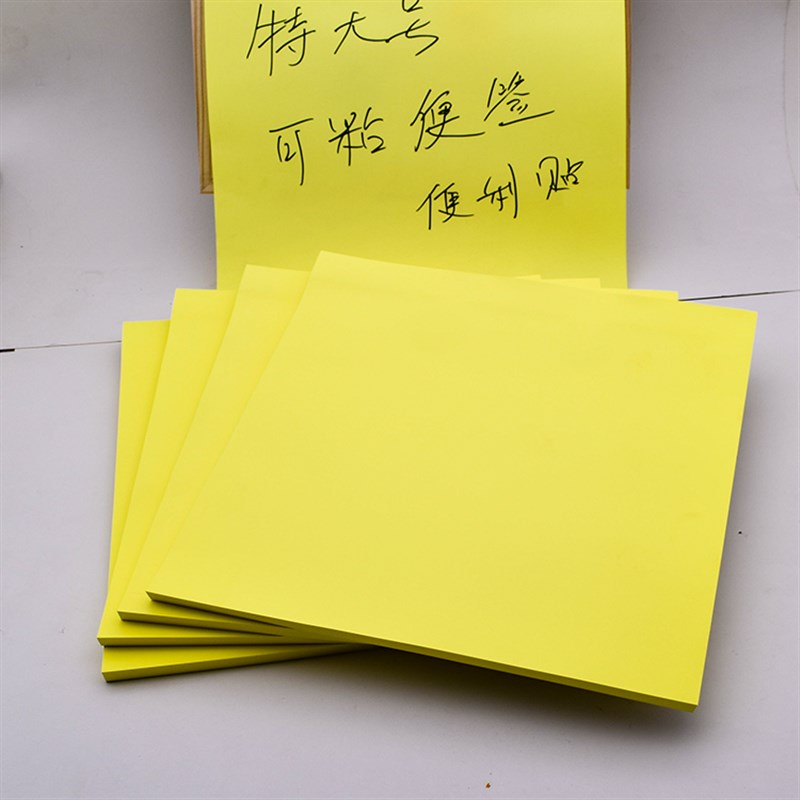 特大号
可粘便签
便利贴